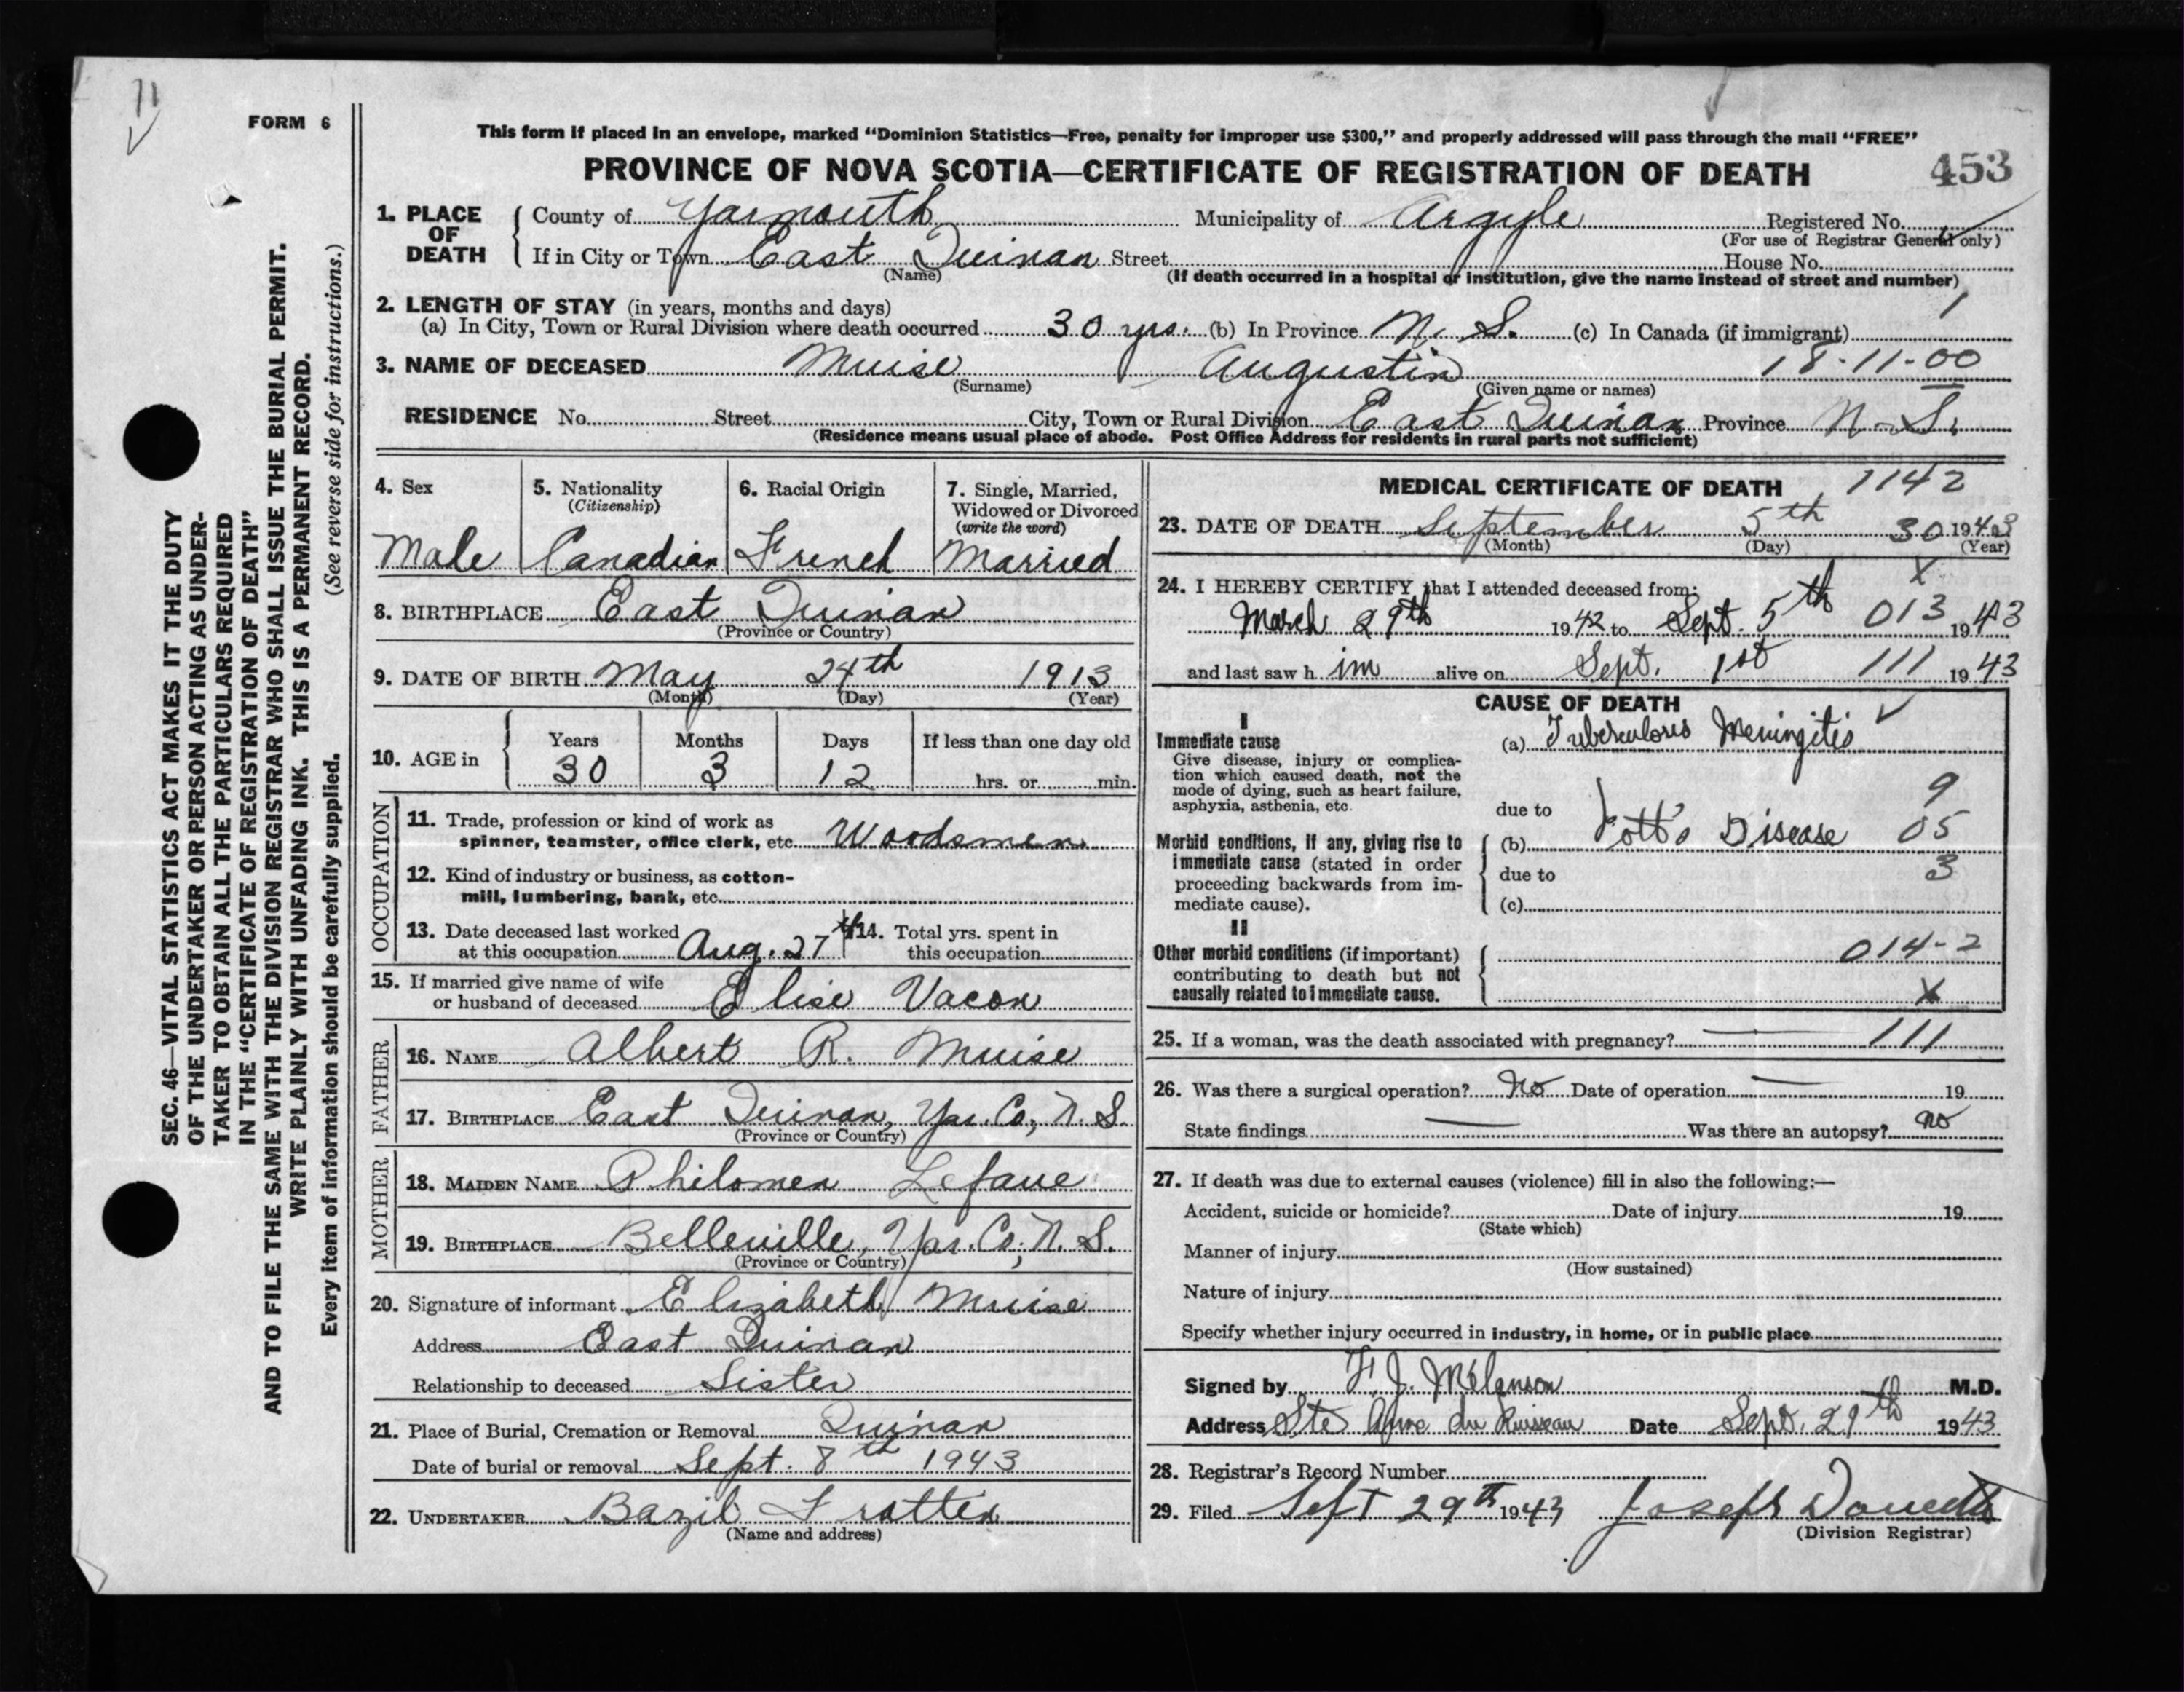 11
FORM 6
This form if placed in an envelope, marked "Dominion Statistics—Free, penalty for improper use $300," and properly addressed will pass through the mail "FREE"
PROVINCE OF NOVA SCOTIA—CERTIFICATE OF REGISTRATION OF DEATH 453
1. PLACE OF DEATH { County of Yarmouth Municipality of Argyle Registered No.
(For use of Registrar General only)
If in City or Town East Quinan Street House No.
(Name) (If death occurred in a hospital or institution, give the name instead of street and number)
2. LENGTH OF STAY (in years, months and days) 1
(a) In City, Town or Rural Division where death occurred 30 yrs. (b) In Province N. S. (c) In Canada (if immigrant)
3. NAME OF DECEASED Muise Augustin 18-11-00
(Surname) (Given name or names)
RESIDENCE No. Street City, Town or Rural Division East Quinan Province N.S.
(Residence means usual place of abode. Post Office Address for residents in rural parts not sufficient)
4. Sex 5. Nationality 6. Racial Origin 7. Single, Married,
(Citizenship) Widowed or Divorced
(write the word)
Male Canadian French Married
8. BIRTHPLACE East Quinan
(Province or Country)
9. DATE OF BIRTH May 24th 1913
(Month) (Day) (Year)
10. AGE in { Years Months Days If less than one day old
30 3 12 hrs. or min.
OCCUPATION
11. Trade, profession or kind of work as
spinner, teamster, office clerk, etc. Woodsmen
12. Kind of industry or business, as cotton-
mill, lumbering, bank, etc.
13. Date deceased last worked 14. Total yrs. spent in
at this occupation Aug. 27 this occupation
15. If married give name of wife
or husband of deceased Elise Vacon
FATHER
16. NAME Albert R. Muise
17. BIRTHPLACE East Quinan, Yar. Co., N. S.
(Province or Country)
MOTHER
18. MAIDEN NAME Philomen Lefave
19. BIRTHPLACE Belleville, Yar. Co; N. S.
(Province or Country)
20. Signature of informant Elizabeth Muise
Address East Quinan
Relationship to deceased Sister
21. Place of Burial, Cremation or Removal Quinan
Date of burial or removal Sept. 8th 1943
22. UNDERTAKER Bazil Frotten
(Name and address)
MEDICAL CERTIFICATE OF DEATH 1142
23. DATE OF DEATH September 5th 30 1943
(Month) (Day) (Year)
24. I HEREBY CERTIFY that I attended deceased from: X
March 29th 1942 to Sept. 5th 013 1943
and last saw h im alive on Sept. 1st 111 1943
CAUSE OF DEATH
I
Immediate cause (a) Tuberculosis Meningitis
Give disease, injury or complica-
tion which caused death, not the
mode of dying, such as heart failure,
asphyxia, asthenia, etc. due to 9
Morbid conditions, if any, giving rise to (b) Pott's Disease 05
immediate cause (stated in order due to 3
proceeding backwards from im-
mediate cause). (c)
II
Other morbid conditions (if important) 014-2
contributing to death but not
causally related to immediate cause. X
25. If a woman, was the death associated with pregnancy? — 111
26. Was there a surgical operation? No Date of operation — 19
State findings — Was there an autopsy? no
27. If death was due to external causes (violence) fill in also the following:—
Accident, suicide or homicide? Date of injury 19
(State which)
Manner of injury
(How sustained)
Nature of injury
Specify whether injury occurred in industry, in home, or in public place
Signed by F. J. Melanson M.D.
Address Ste Anne du Ruisseau Date Sept. 29th 1943
28. Registrar's Record Number
29. Filed Sept 29th 1943 Joseph
(Division Registrar)
SEC. 46—VITAL STATISTICS ACT MAKES IT THE DUTY
OF THE UNDERTAKER OR PERSON ACTING AS UNDER-
TAKER TO OBTAIN ALL THE PARTICULARS REQUIRED
IN THE "CERTIFICATE OF REGISTRATION OF DEATH"
AND TO FILE THE SAME WITH THE DIVISION REGISTRAR WHO SHALL ISSUE THE BURIAL PERMIT.
WRITE PLAINLY WITH UNFADING INK. THIS IS A PERMANENT RECORD.
Every item of information should be carefully supplied. (See reverse side for instructions.)